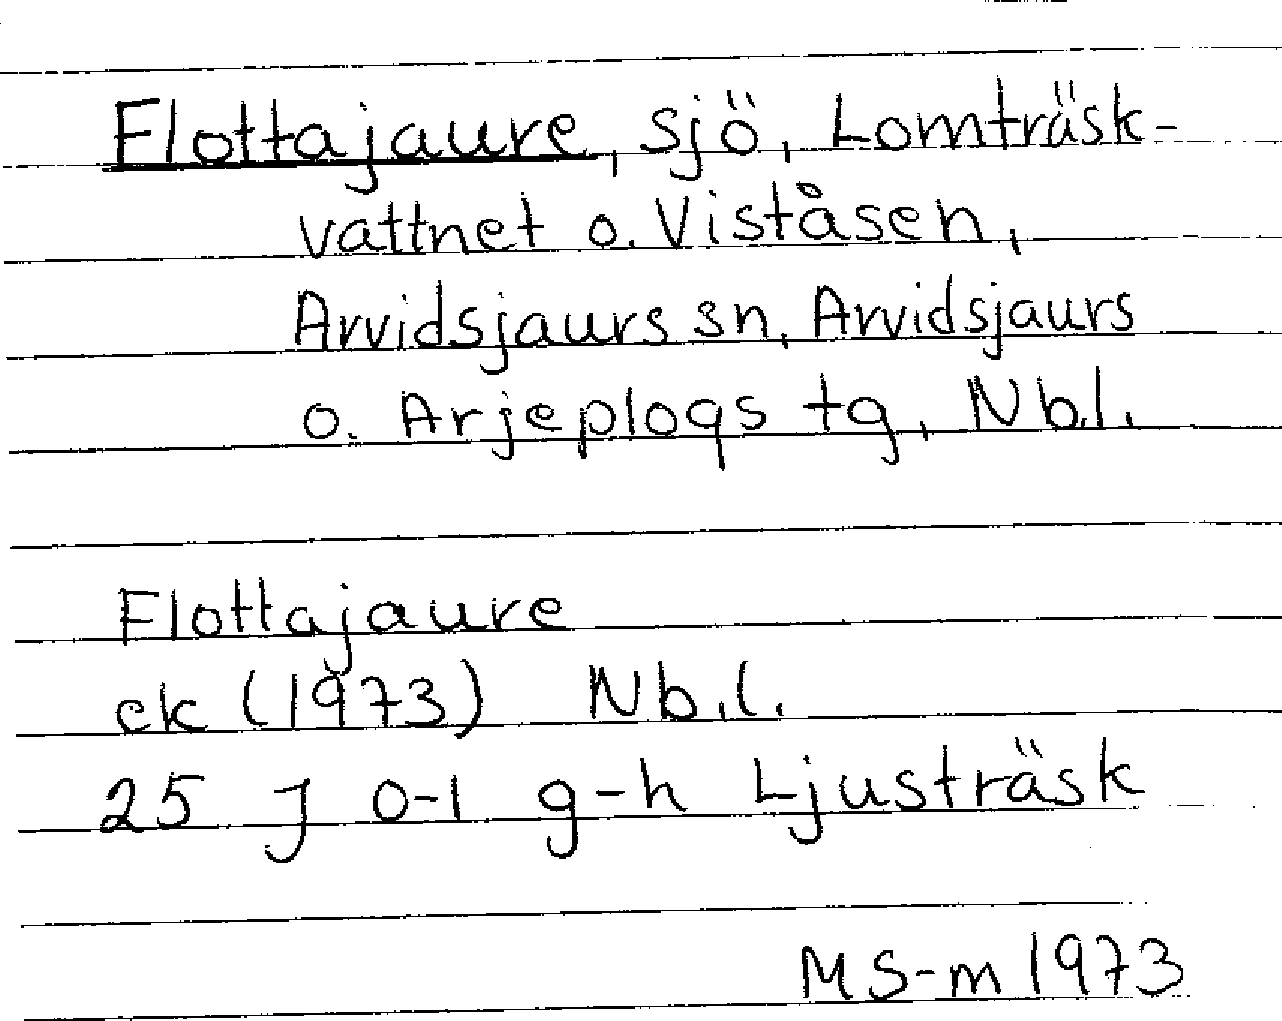 Flottajaure, sjö, Lomträsk-
vattnet o. Viståsen,
Arvidsjaurs sn, Arvidsjaurs
o. Arjeplogs tg, Nb.l.
Flottajaure
ek (1973) Nb.l.
25 J 0-1 g-h Ljusträsk
MS-m 1973